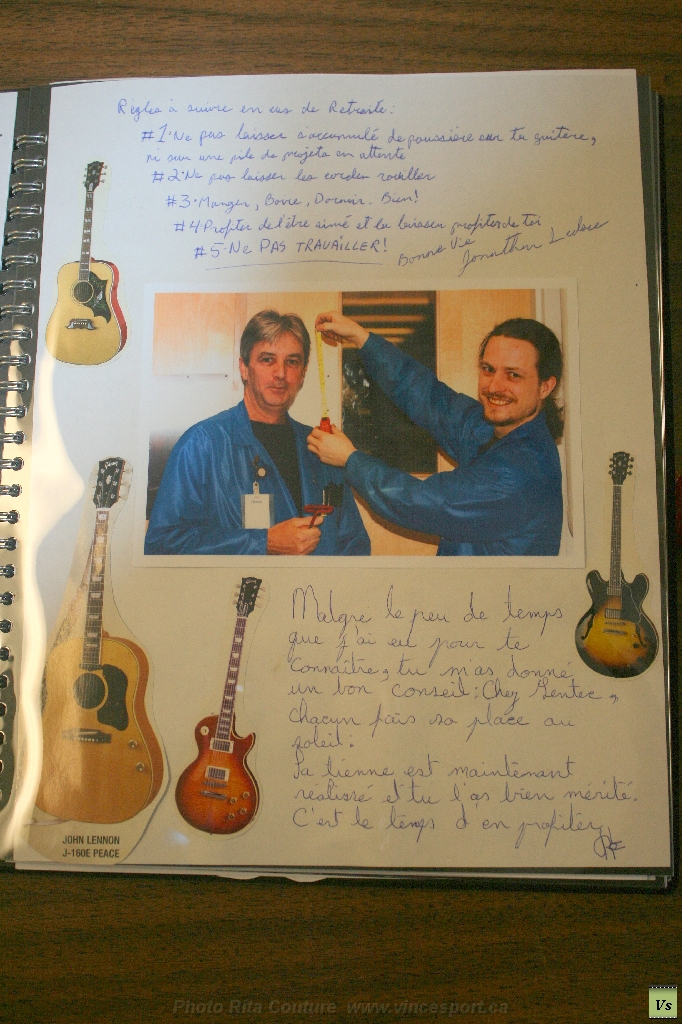 Règles à suivre en cas de Retraite:
#1-Ne pas laisser s'accumulé de poussière sur ta guitare,
ni sur une pile de projets en attente
#2-Ne pas laisser les cordes rouiller
#3-Manger, Boire, Dormir. Bien!
#4 Profiter de l'être aimé et la laisser profiter de toi
#5-Ne PAS TRAVAILLER!
Bonne Vie
Jonathan
Malgré le peu de temps
que j'ai eu pour te
connaître, tu m'as donné
un bon conseil: Chez Gentec,
chacun fais sa place au
soleil.
La tienne est maintenant
réalisé et tu l'as bien mérité.
C'est le temps d'en profiter
JOHN LENNON
J-160E PEACE
Photo Rita Couture www.vincesport.ca
Vs